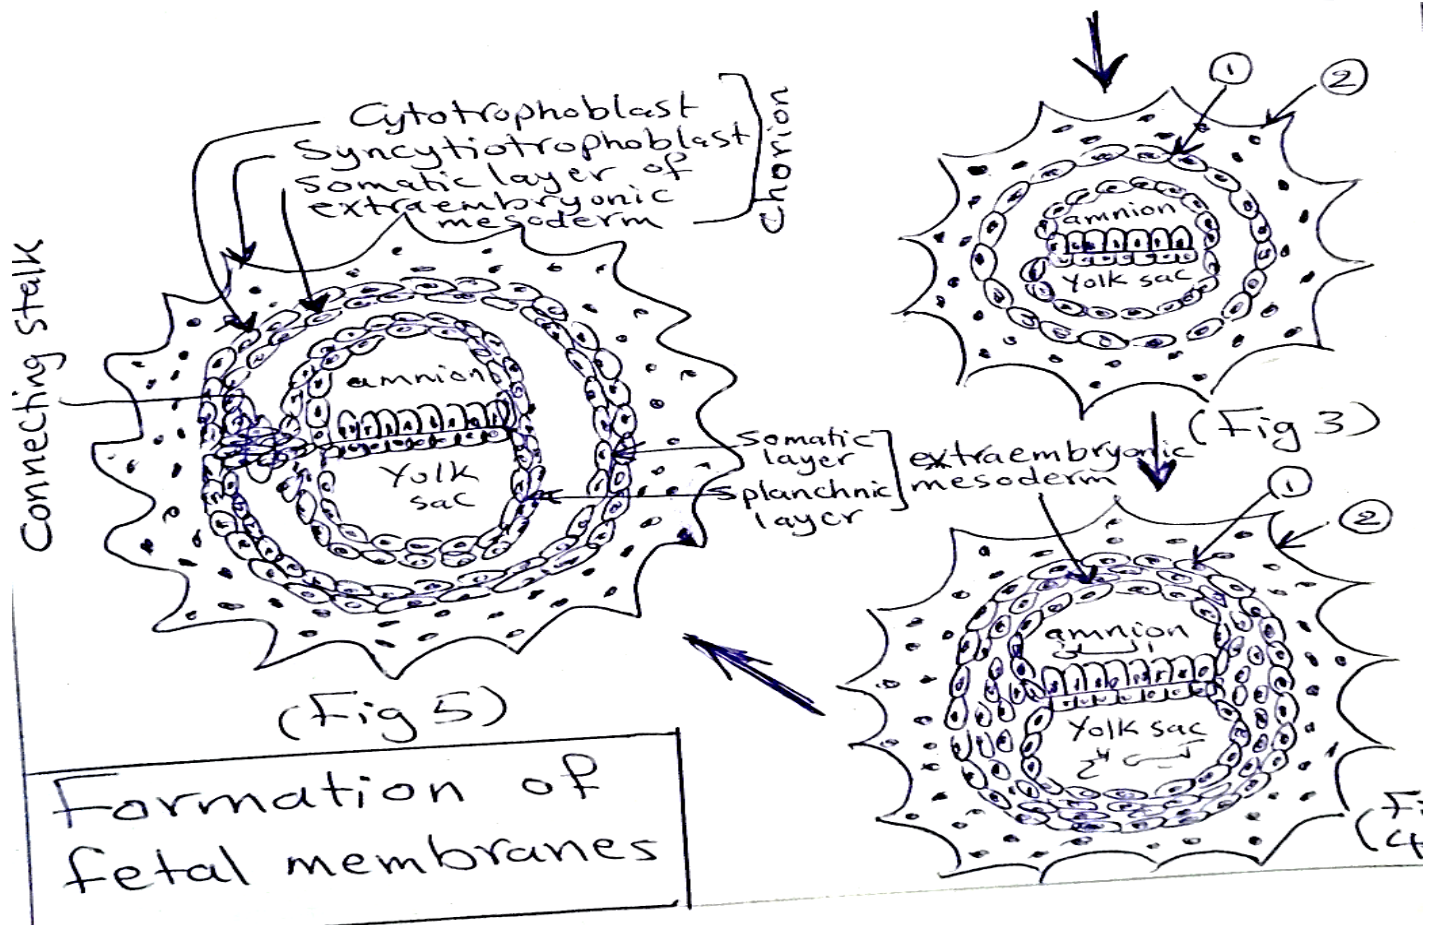 Cytotrophoblast
Syncytiotrophoblast
somatic layer of
extraembryonic
mesoderm
chorion
Connecting stalk
amnion
Yolk
sac
somatic
layer
splanchnic
layer
extraembryonic
mesoderm
(Fig 5)
Formation of
fetal membranes
1
2
amnion
Yolk sac
(Fig 3)
1
2
amnion
Yolk sac